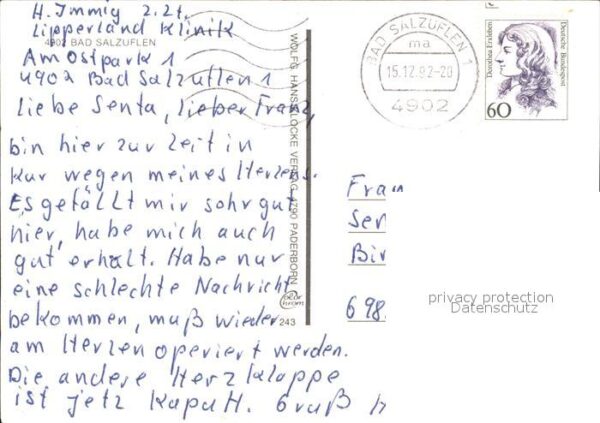 H. Immig z. Zt.
Lipperland Klinik
4902 BAD SALZUFLEN
Am Ostpark 1
4902 Bad Salzuflen 1
Liebe Senta, lieber Franz,
bin hier zur Zeit in
Kur wegen meines Herzens.
Es gefällt mir sehr gut
hier, habe mich auch
gut erhalt. Habe nur
eine schlechte Nachricht
bekommen, muß wieder
am Herzen operiert werden.
Die andere Herzklappe
ist jetz kaputt. Gruß H
WOLFR. HANS LOCKE VERLAG 4790 PADERBORN
243
BAD SALZUFLEN 1
ma
15.12.92-20
4902
Dorothea Erxleben
Deutsche Bundespost
60
Frau
Sen
Bir
698
privacy protection
Datenschutz